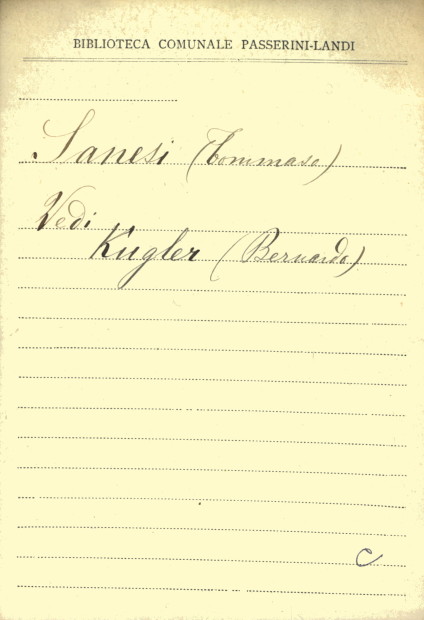 BIBLIOTECA COMUNALE PASSERINI-LANDI
Sanesi (Tommaso)
Vedi
Kugler (Bernardo)
C